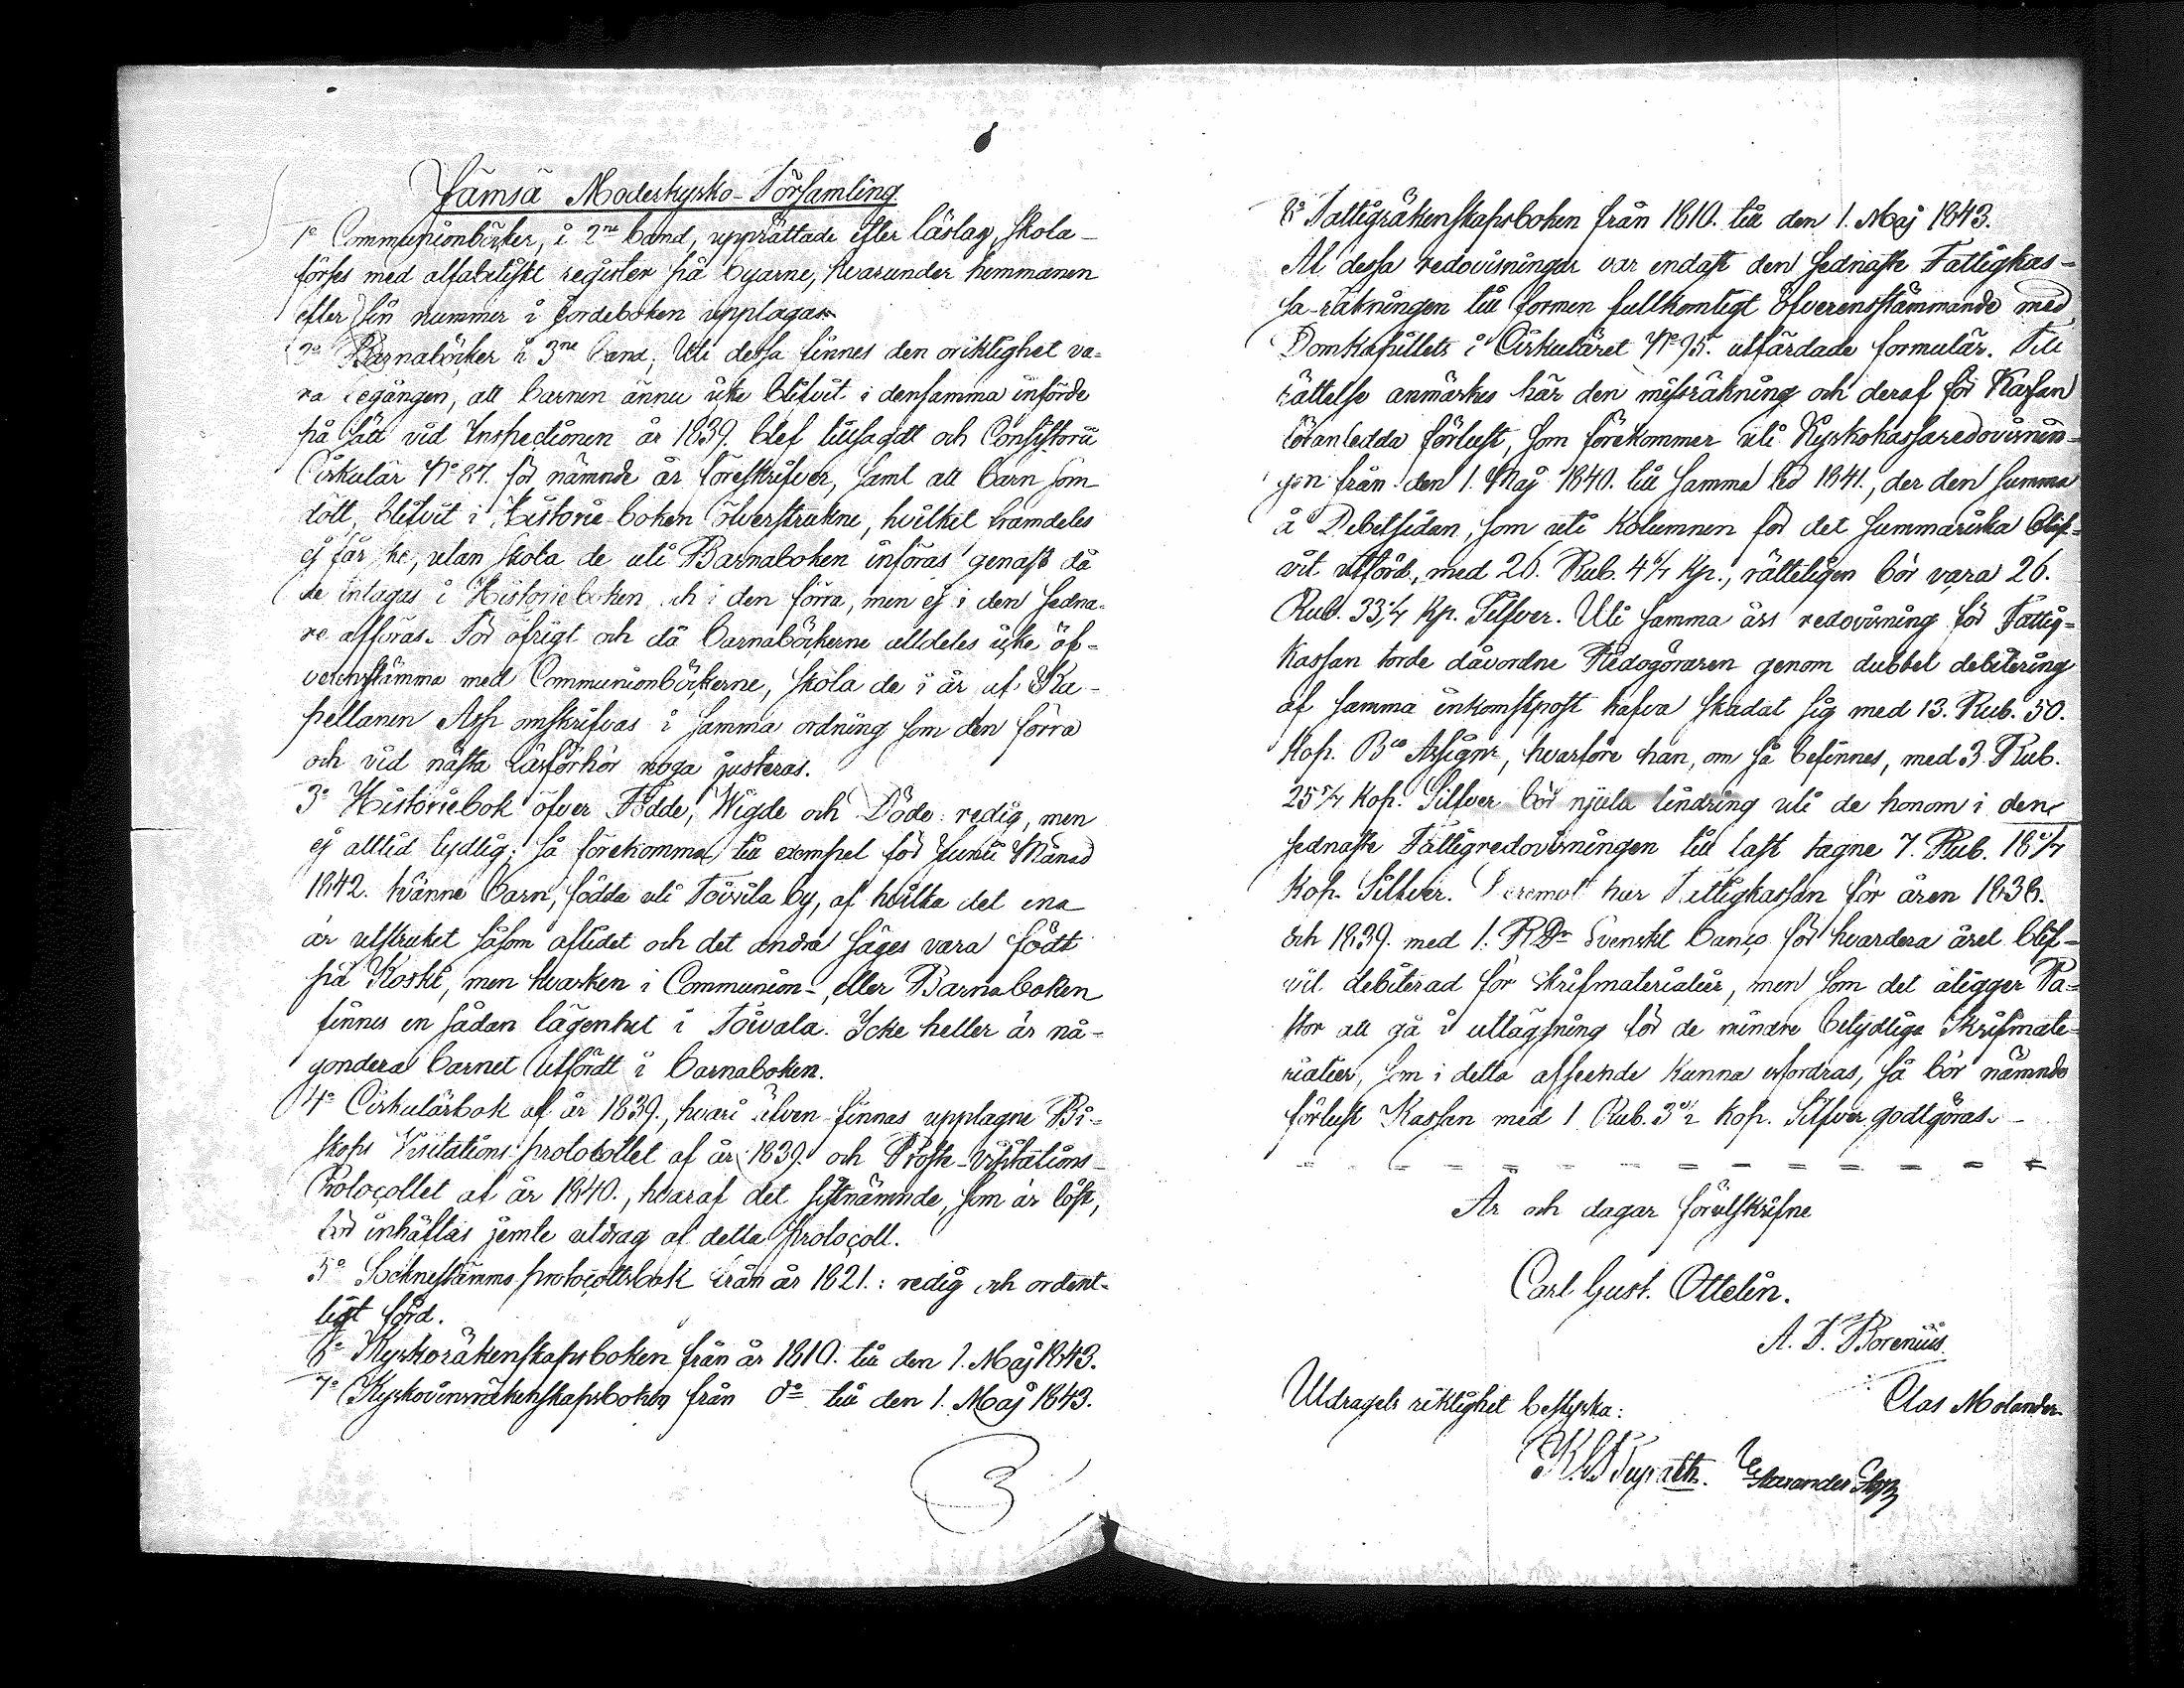 Jämsä Moderkyrko-Församling
1o Communionböcker, i 2ne band, upprättade efter läslag, skola
förses med alfabetiskt register på byarne, hvarunder hemmanen
efter sin nummer i Jordeboken upptagas
2o Barnaböcker i 3ne band; Uti dessa finnes den oriktighet va-
ra begången, att barnen ännu icke blifvit i densamma införde
på sätt vid Inspectionen år 1839. blef tillsagdt och Consistorii
Cirkulär No 87. för nämnde år föreskrifver, samt att barn som
dött, blifvit i Historie-boken öfverstrukne, hvilket framdeles
ej får ske, utan skola de uti Barnaboken införas genast då
de intagas i Historieboken och i den förra, men ej i den sedna-
re afföras. För öfrigt och då barnaböckerne alldeles icke öf-
verensstämma med Communionböckerne, skola de i år af Ka-
pellanen Asp omskrifvas i samma ordning som den förra
och vid nästa läsförhör noga justeras.
3o Historiebok öfver Födde, Wigde och Döde: redig, men
ej alltid tydlig; så förekomma till exempel för Junii Månad
1842. tvänne barn, födda uti Toivila by, af hvilka det ena
är utstruket såsom aflidet och det andra säges vara födt
på Koski, men hvarken i Communion-, eller Barnaboken
finnes en sådan lägenhet i Toivala. Icke heller är nå-
gondera barnet utfördt i barnaboken.
4o Cirkulärbok af år 1839., hvari äfven finnas upptagne Bi-
skops Visitations protocollet af år 1839. och Proste-Visitations-
Protocollet af år 1840., hvaraf det sistnämnde, som är löst,
bör inhäftas jemte utdrag af detta protocoll.
5o Sockne­stämmo protocollsbok från år 1821.: redig och ordent-
ligt förd.
6o Kyrkoräkenskapsboken från år 1810. till den 1. Maj 1843.
7o Kyrkovinsräkenskapsboken från do till den 1. Maj 1843.
3
8o Fattigräkenskapsboken från 1810. till den 1. Maj 1843.
Af dessa redovisningar var endast den sednaste Fattigkas-
sa-räkningen till formen fullkomligt öfverensstämmande med
Domkapitlets i Cirkuläret No 95. utfärdade formulär. Till
rättelse anmärkes här den missräkning och deraf för Kassan
föranledda förlust, som förekommer uti Kyrkokassaredovisnin-
gen från den 1. Maj 1840. till samma tid 1841., der den summa
å Debetsidan, som uti Kolumnen för det summariska blif-
vit utförd, med 26. Rub. 4 2/7 Kp., rätteligen bör vara 26.
Rub. 33 5/7 Kp. Silfver. Uti samma års redovisning för Fattig-
kassan torde dåvordne Redogöraren genom dubbel debitering
af samma inkomstpost hafva skadat sig med 13. Rub. 50.
Kop. Bco Assignr, hvarföre han, om så befinnes, med 3. Rub.
25 5/7 Kop. Silfver bör njuta lindring uti de honom i den
sednaste Fattigredovisningen till last tagne 7. Rub. 18 4/7
Kop. Silfver. Deremot har Fattigkassan för åren 1838.
och 1839. med 1: RDr Svenskt banco för hvardera året blif-
vit debiterad för skrifmaterialier, men som det åligger Pa-
stor att gå i utlägsning för de mindre betydliga skrifmate-
rialier, som i detta afseende kunna erfordras, så bör nämnde
förlust Kassan med 1 Rub. Kop. Silfver godtgöras.
År och dagar förutskrifne
Carl Gust. Ottelin.
A. F. Borenius.
Clas Molander
Utdragets riktighet bestyrka:
Alexander Asp